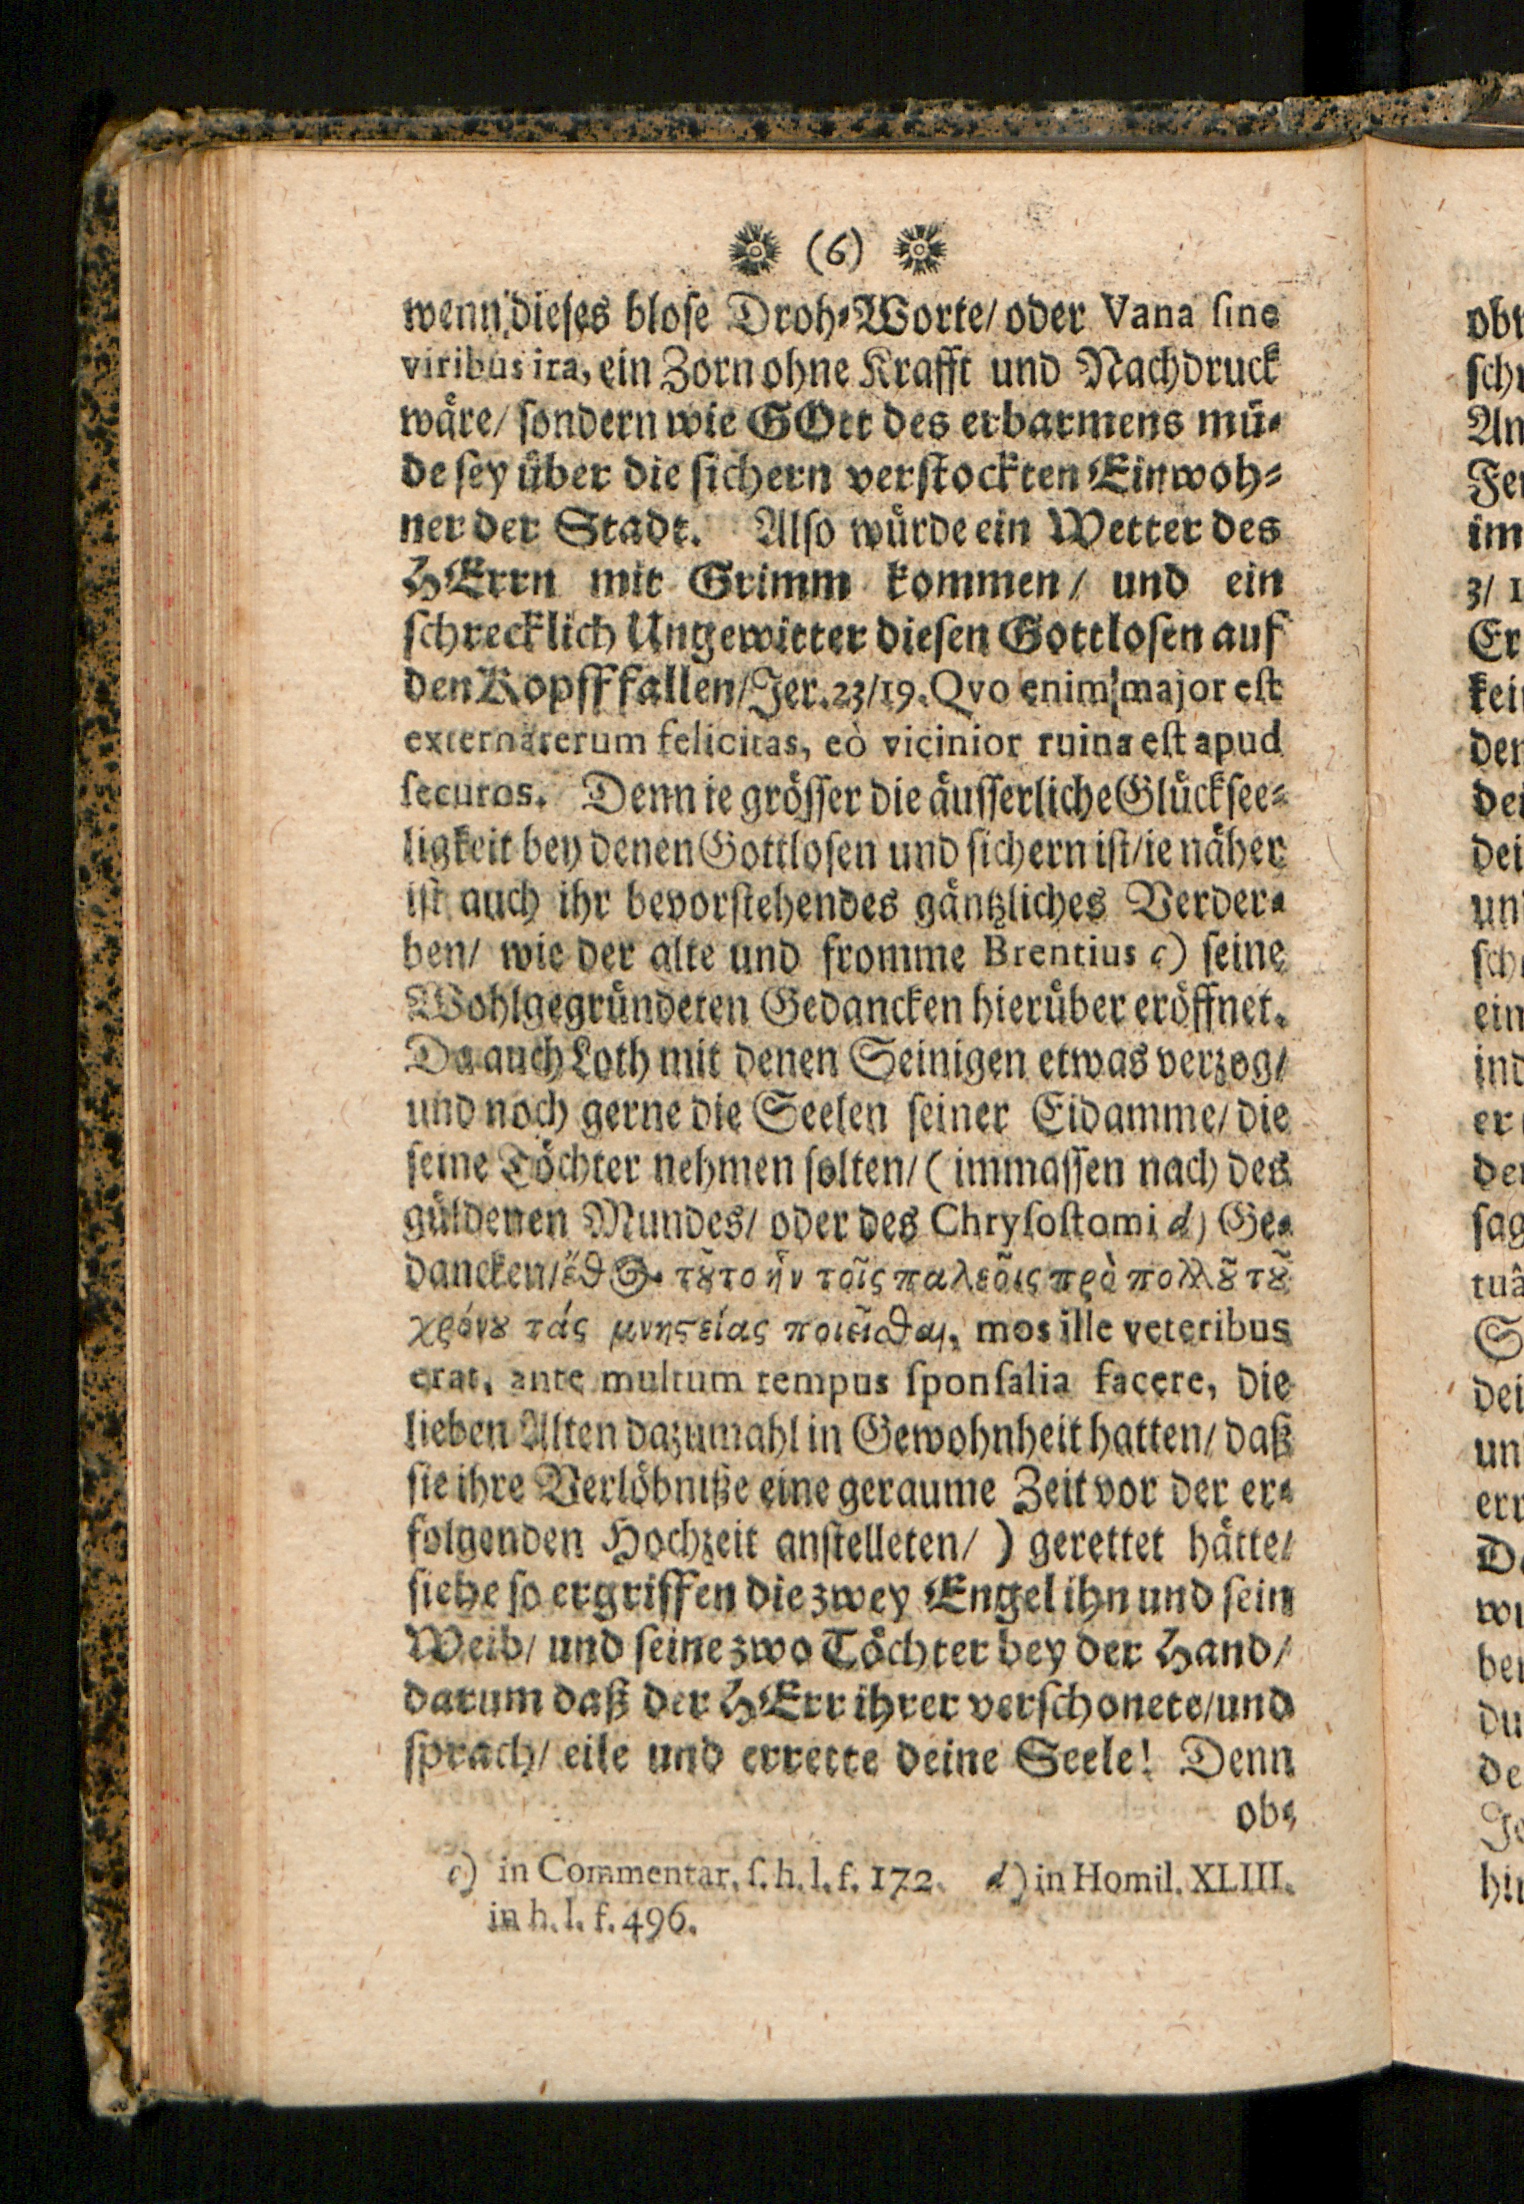 (6)
wenn dieses blose Droh-Worte/ oder Vana sine
viribus ira, ein Zorn ohne Krafft und Nachdruck
wäre/ sondern wie GOtt des erbarmens mü-
de sey über die sichern verstockten Einwoh-
ner der Stadt. Also würde ein Wetter des
HErrn mit Grimm kommen/ und ein
schrecklich Ungewitter diesen Gottlosen auf
den Kopff fallen/ Jer. 23/19. Qvo enim major est
externarerum felicitas, eò vicinior ruina est apud
securos. Denn ie grösser die äusserliche Glücksee-
ligkeit bey denen Gottlosen und sichern ist/ ie näher
ist auch ihr bevorstehendes gäntzliches Verder-
ben/ wie der alte und fromme Brentius c) seine
Wohlgegründeten Gedancken hierüber eröffnet.
Da auch Loth mit denen Seinigen etwas verzog/
und noch gerne die Seelen seiner Eidamme/ die
seine Töchter nehmen solten/ (immassen nach des
güldenen Mundes/ oder des Chrysostomi d) Ge-
dancken/ ἔθος τȣ̃το ἠν τοῖς παλεοῖς πρὸ πολλȣ̃ τȣ̃
χρόνȣ τάς μνηςείας ποιεῖσθαι, mos ille veteribus
erat, ante multum tempus sponsalia facere, die
lieben Alten dazumahl in Gewohnheit hatten/ daß
sie ihre Verlöbniße eine geraume Zeit vor der er-
folgenden Hochzeit anstelleten/ ) gerettet hätte/
siehe so ergriffen die zwey Engel ihn und sein
Weib/ und seine zwo Töchter bey der Hand/
darum daß der HErr ihrer verschonete/ und
sprach/ eile und errette deine Seele! Denn
ob-
c) in Commentar. s. h. l. f. 172. d) in Homil. XLIII.
in h. l. f. 496.
obw
sch
An
Fe
im
3/ 1
Er
kei
den
dei
dei
un
sch
ein
ind
er
de
sag
tuâ
S
dei
un
err
Da
wi
be
du
de
Je
hin